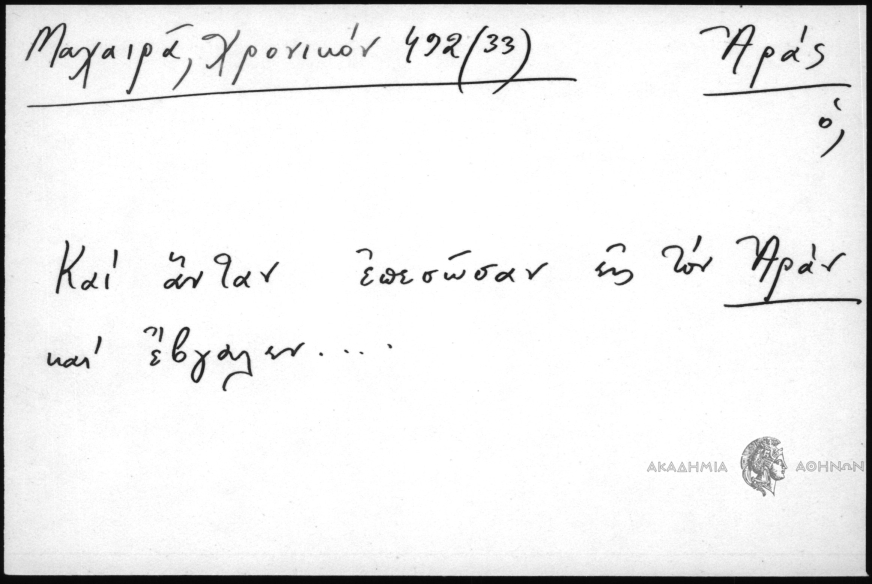 Μαχαιρᾶ, Χρονικόν 492 (33) Ἀράς
ὁ,
Καί ἄνταν ἐπεσῶσαν εἰς τόν Ἀράν
καί ἔβγαλεν....
ΑΚΑΔΗΜΙΑ ΑΘΗΝΩΝ